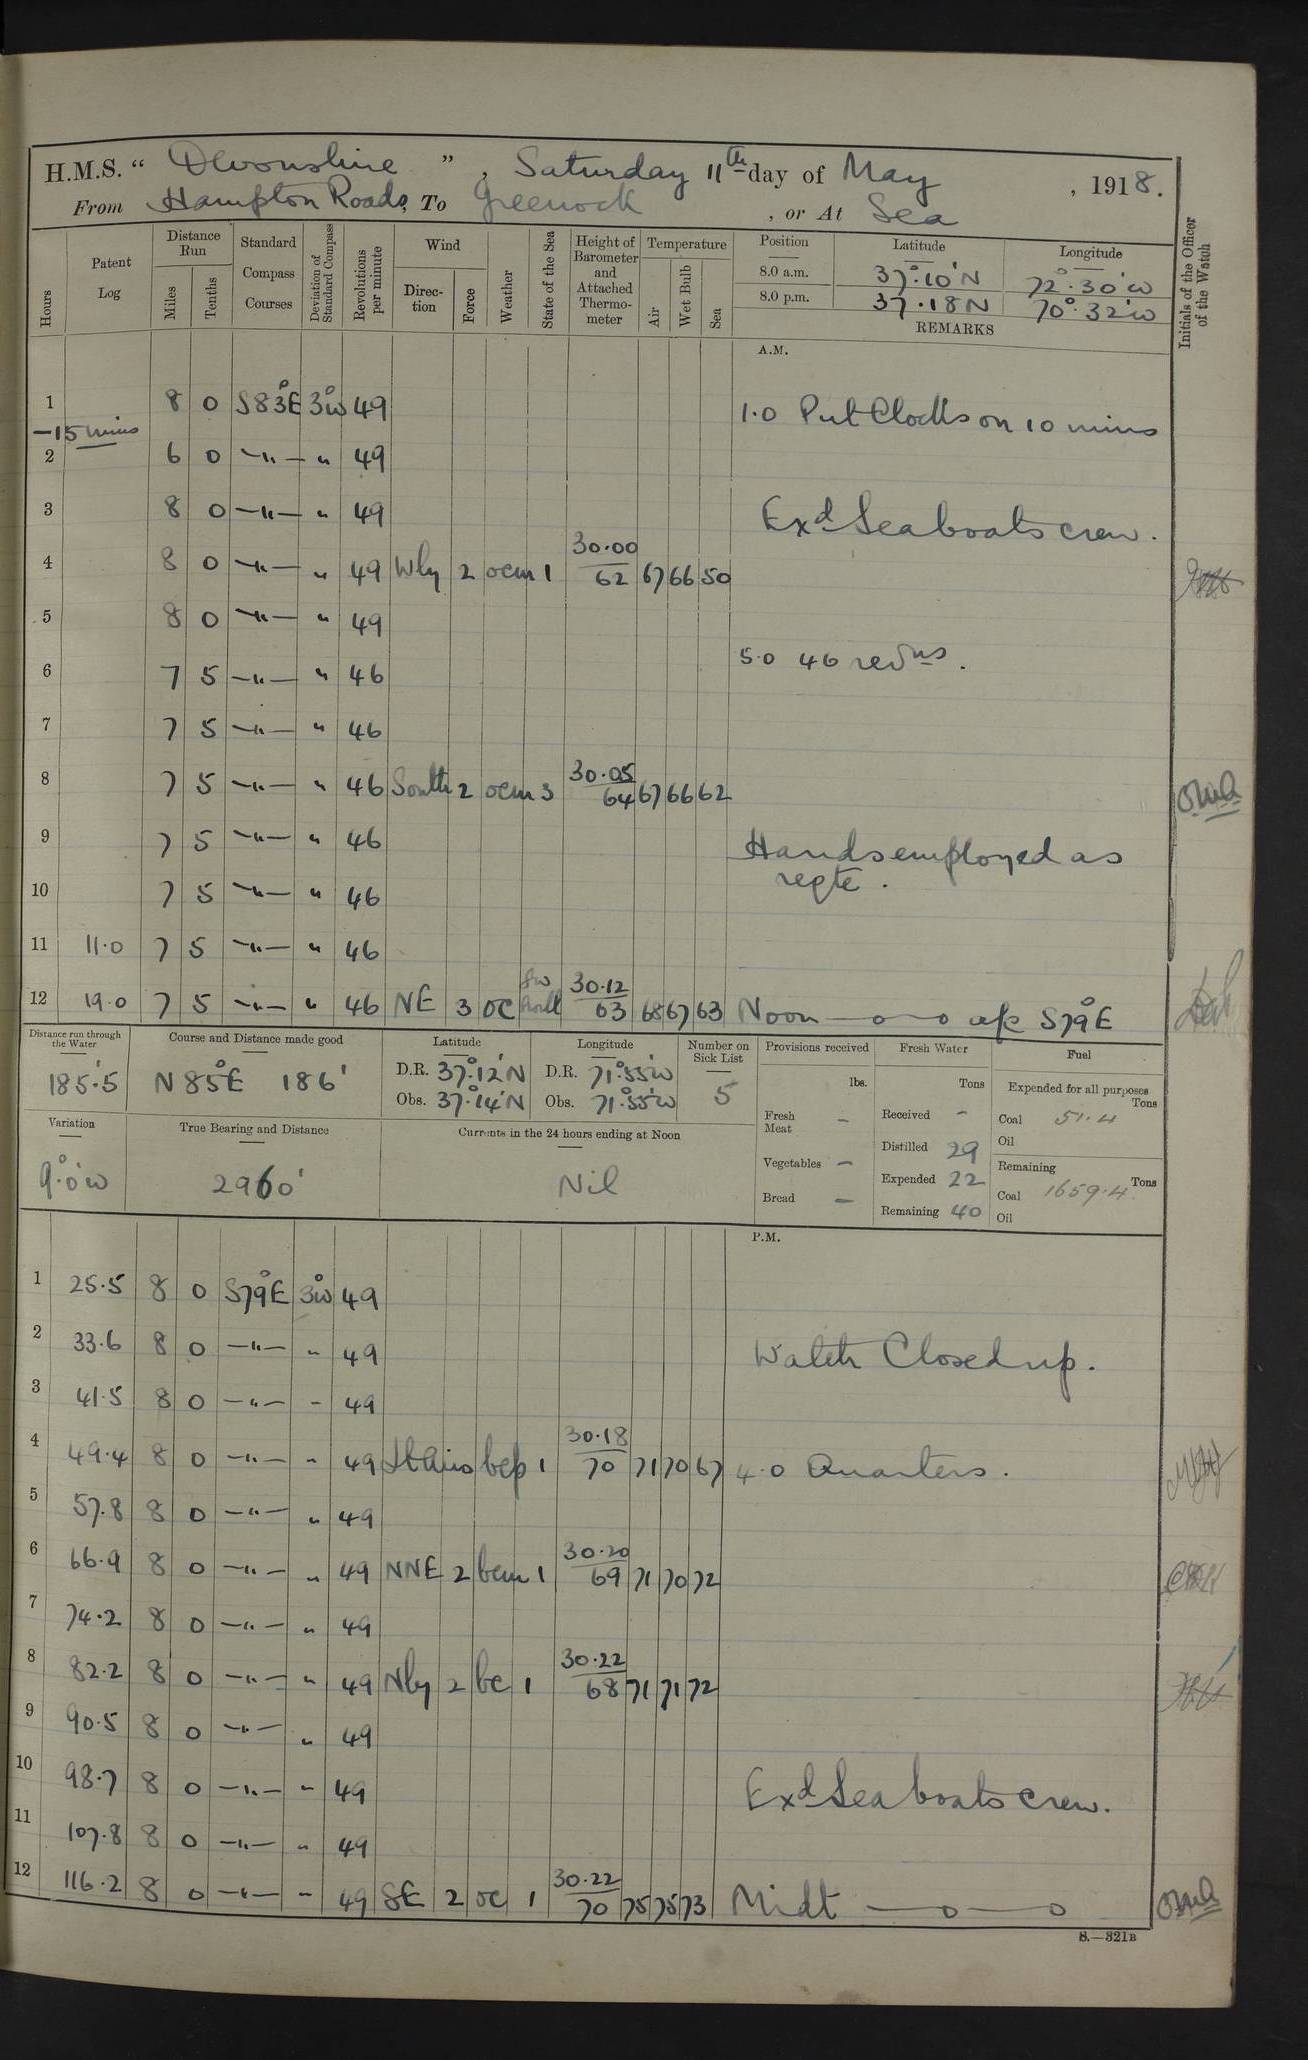 H.M.S. “ Devonshire ”, Saturday 11th day of May, 1918.
From Hampton Roads, To Greenock, or At Sea
Hours Patent Log Distance Run Miles Tenths Standard Compass Courses Deviation of Standard Compass Revolutions per minute Wind Direction Force Weather State of the Sea Height of Barometer and Attached Thermometer Temperature Air Wet Bulb Sea Position Latitude Longitude Initials of the Officer of the Watch
8.0 a.m. 37°.10'N 72°.30'W
8.0 p.m. 37.18N 70°.32'W
REMARKS
A.M.
1 8 0 S83°E 3°W 49 1.0 Put Clocks on 10 mins
-15 mins
2 6 0 -"- " 49
3 8 0 -"- " 49 Exd Seaboats crew.
4 8 0 -"- " 49 Wly 2 ocm 1 30.00 62 67 66 50
5 8 0 -"- " 49
5.0 46 revns.
6 7 5 -"- " 46
7 7 5 -"- " 46
8 7 5 -"- " 46 South 2 ocm 3 30.05 64 67 66 62
9 7 5 -"- " 46 Hands employed as
10 7 5 -"- " 46 reqte.
11 11.0 7 5 -"- " 46
12 19.0 7 5 -"- " 46 NE 3 oc SW 30.12 63 68 67 63 Noon —o—o a/c S79°E
Distance run through the Water Course and Distance made good Latitude Longitude Number on Sick List Provisions received Fresh Water Fuel
185.5' N85°E 186' D.R. 37°.12'N D.R. 71°.55'W 5 lbs. Tons Expended for all purposes Tons
Obs. 37°.14'N Obs. 71°.55'W Fresh Meat - Received - Coal 51.4
Variation True Bearing and Distance Currents in the 24 hours ending at Noon Distilled 29 Oil
9°.0'W 2960' Nil Vegetables - Expended 22 Remaining Tons
Bread - Remaining 40 Coal 1659.4
Oil
P.M.
1 25.5 8 0 S79°E 3°W 49
2 33.6 8 0 -"- " 49 Watch Closed up.
3 41.5 8 0 -"- " 49
4 49.4 8 0 -"- " 49 Lt Airs bcp 1 30.18 70 71 70 67 4.0 Quarters.
5 57.8 8 0 -"- " 49
6 66.9 8 0 -"- " 49 NNE 2 bcm 1 30.20 69 71 70 72
7 74.2 8 0 -"- " 49
8 82.2 8 0 -"- " 49 Nly 2 bc 1 30.22 68 71 71 72
9 90.5 8 0 -"- " 49
10 98.7 8 0 -"- " 49 Exd Seaboats crew.
11 107.8 8 0 -"- " 49
12 116.2 8 0 -"- " 49 SE 2 oc 1 30.22 70 75 75 73 Midt —o—o
S.—321B